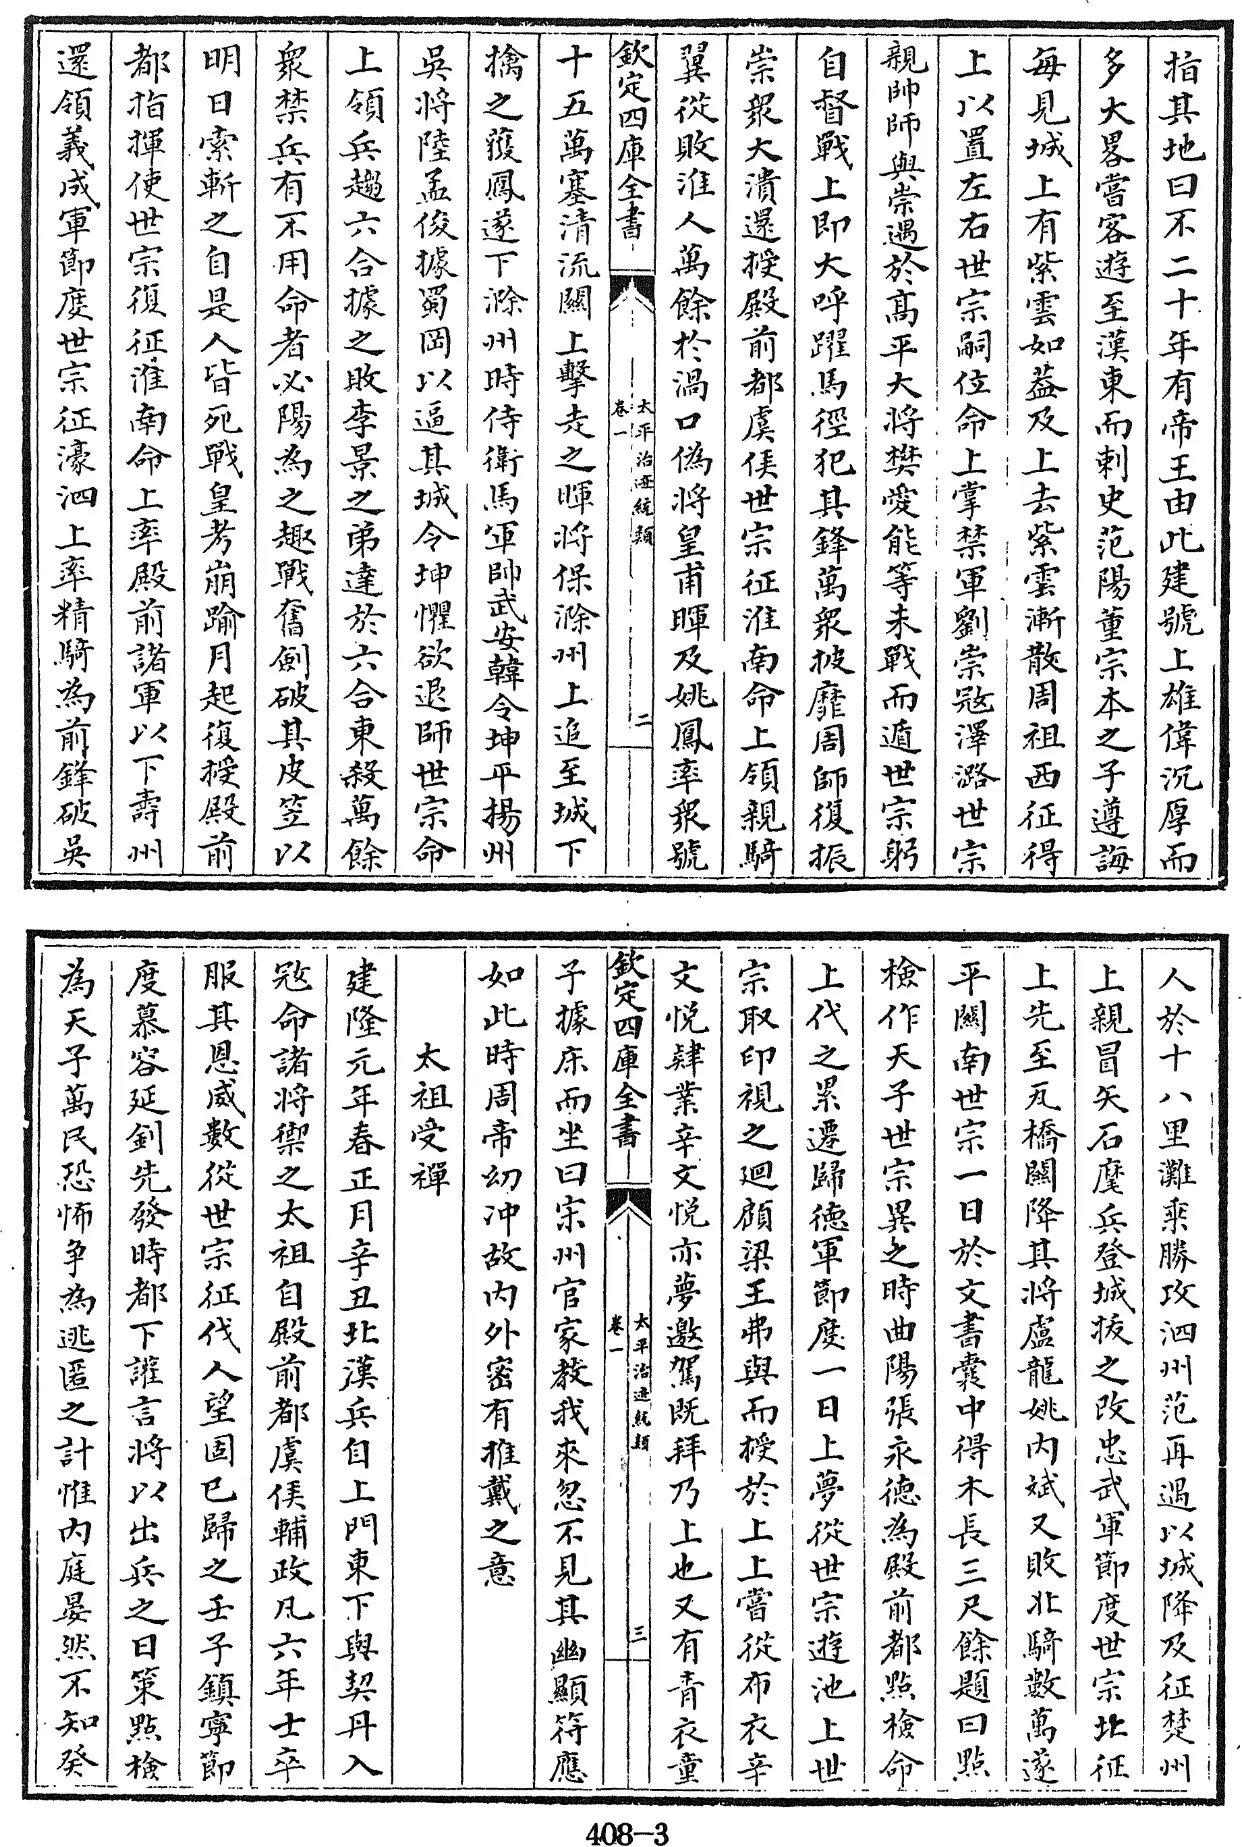 指其地曰不二十年有帝王由此建號上雄偉沉厚而
多大畧嘗客遊至漢東而刺史范陽董宗本之子遵誨
每見城上有紫雲如葢及上去紫雲漸散周祖西征得
上以置左右世宗嗣位命上掌禁軍劉崇冦澤潞世宗
親帥師與崇遇於髙平大将樊愛能等未戰而遁世宗躬
自督戰上即大呼躍馬徑犯其鋒萬衆披靡周師復振
崇衆大潰還授殿前都虞候世宗征淮南命上領親騎
翼從敗淮人萬餘於渦口偽将皇甫暉及姚鳳率衆號
欽定四庫全書
太平治迹統類
卷一
二
十五萬塞清流關上擊走之暉将保滁州上追至城下
擒之獲鳳遂下滁州時侍衛馬軍帥武安韓令坤平揚州
吳将陸孟俊據蜀岡以逼其城令坤懼欲退師世宗命
上領兵趨六合據之敗李景之弟達於六合東殺萬餘
衆禁兵有不用命者必陽為之趣戰奮劍破其皮笠以
明日索斬之自是人皆死戰皇考崩踰月起復授殿前
都指揮使世宗復征淮南命上率殿前諸軍以下壽州
還領義成軍節度世宗征濠泗上率精騎為前鋒破吳
人於十八里灘乘勝攻泗州范再遇以城降及征楚州
上親冒矢石麾兵登城拔之改忠武軍節度世宗北征
上先至瓦橋關降其将盧龍姚内斌又敗北騎數萬遂
平關南世宗一日於文書囊中得木長三尺餘題曰點
檢作天子世宗異之時曲陽張永德為殿前都點檢命
上代之累遷歸德軍節度一日上夢從世宗遊池上世
宗取印視之廻顧梁王弗與而授於上上嘗從布衣辛
文悅肄業辛文悅亦夢邀駕既拜乃上也又有青衣童
欽定四庫全書
太平治迹統類
卷一
三
子據床而坐曰宋州官家教我來忽不見其幽顯符應
如此時周帝幼冲故内外密有推戴之意
太祖受禪
建隆元年春正月辛丑北漢兵自上門東下與契丹入
冦命諸将禦之太祖自殿前都虞候輔政凡六年士卒
服其恩威數從世宗征伐人望固已歸之壬子鎮寧節
度慕容延釗先發時都下讙言将以出兵之日策點檢
為天子萬民恐怖争為逃匿之計惟内庭晏然不知癸
408-3